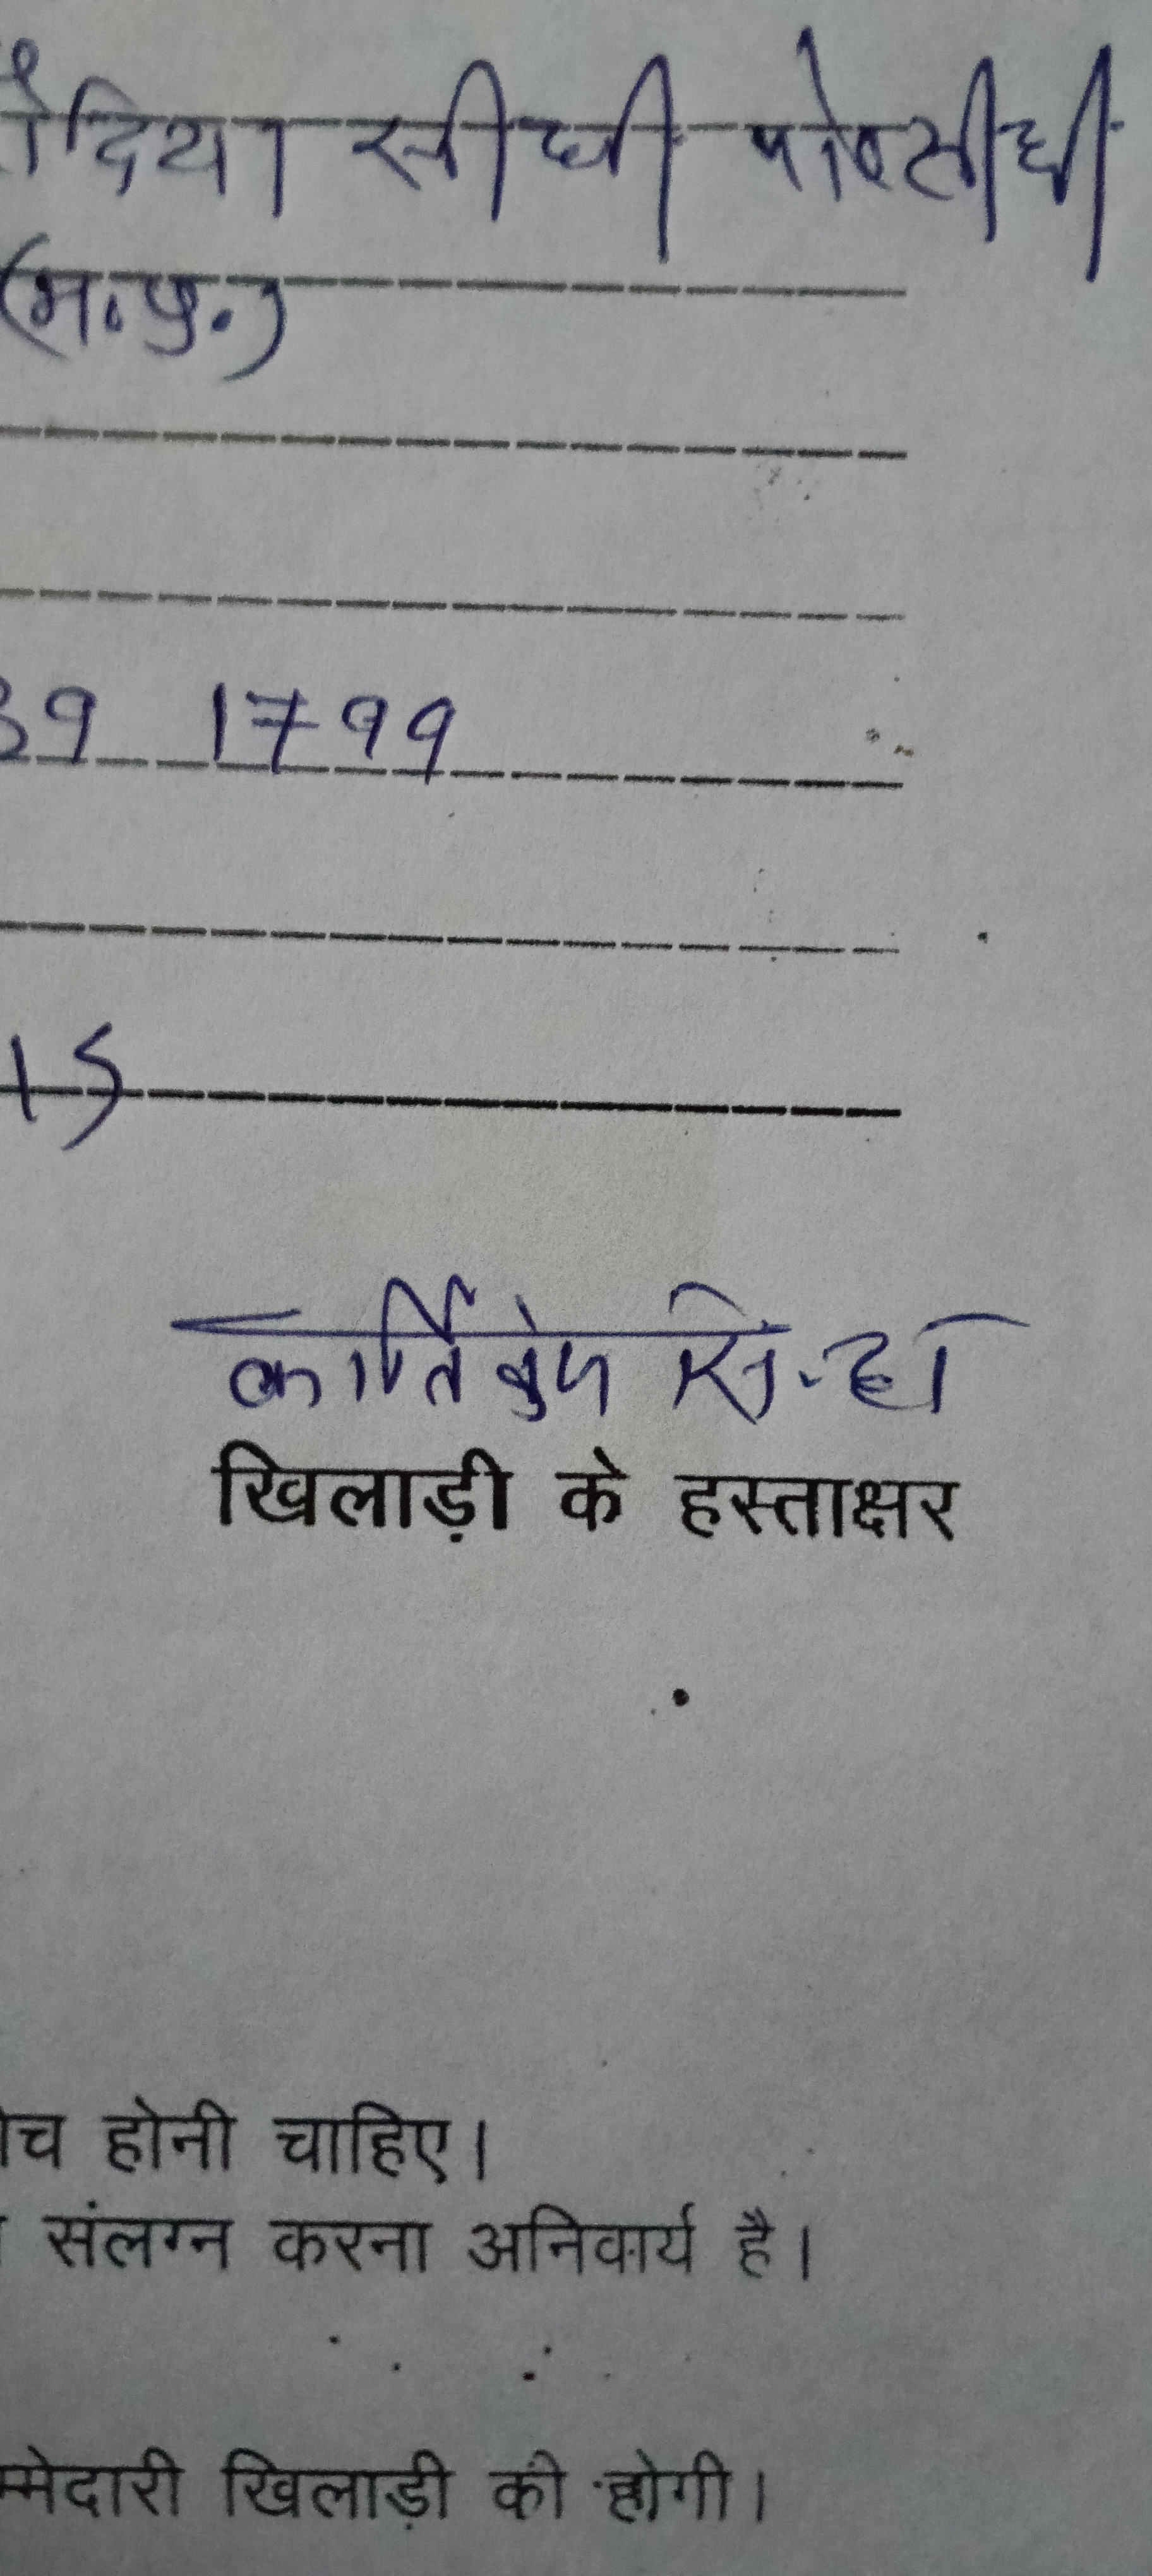 दिया सीधी पोस्ट सीधी
(म.प्र.)
39 1799
15
कार्तिकेय सिन्हा
खिलाड़ी के हस्ताक्षर
ीच होनी चाहिए।
संलग्न करना अनिवार्य है।
म्मेदारी खिलाड़ी की होगी।